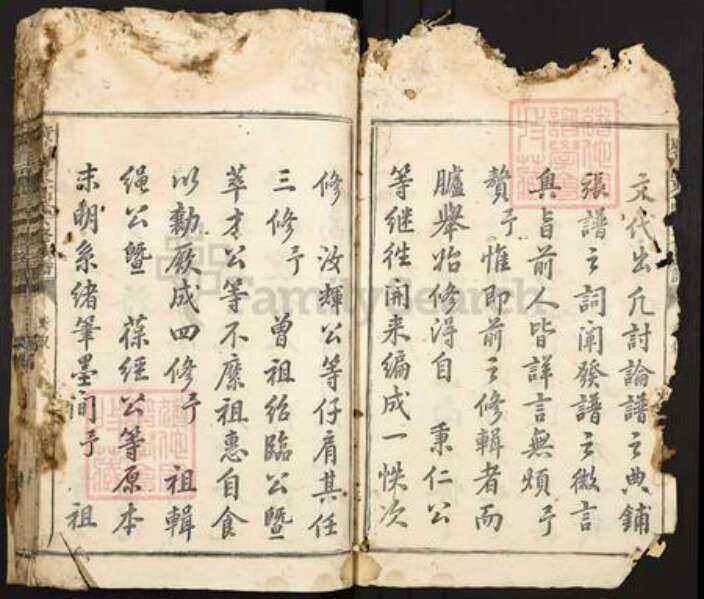 文代出凡討論譜之典鋪
張譜之詞闡發譜之微言
奥旨前人皆詳言無煩予
贅予惟即前之修輯者而
臚舉始修淂自 秉仁公
等继徃開来编成一帙次
修 汝輝公等仔肩其任
三修予 曾祖绍臨公暨
萃才公等不縻祖惠自食
以勷厥成四修予 祖輯
绳公暨 葆經公等原本
末明系绪筆墨间予 祖
FamilySearch